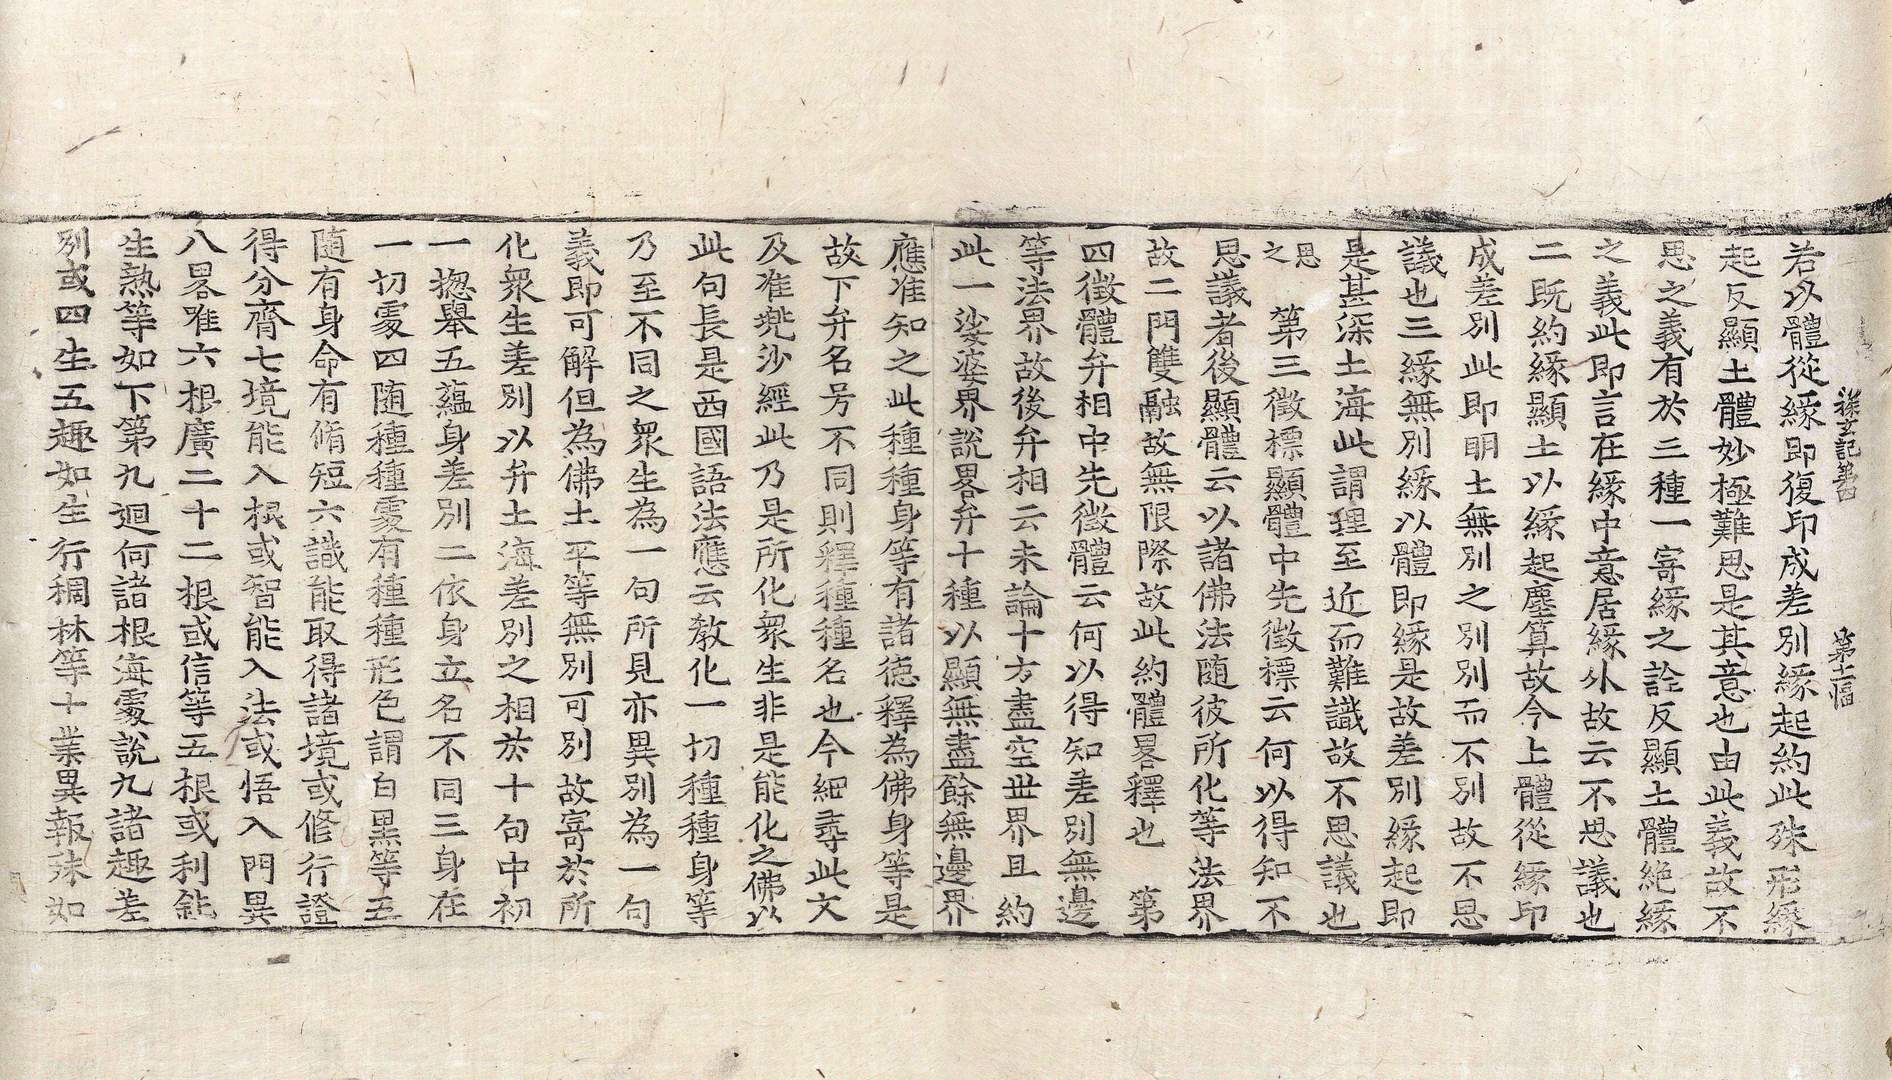 探玄記第四　第十二幅
若以體從緣即復印成差別緣起約此殊形緣
起反顯土體妙極難思是其意也由此義故不
思之義有於三種一寄緣之詮反顯土體絕緣
之義此即言在緣中意居緣外故云不思議也
二既約緣顯土以緣起塵筭故今上體從緣印
成差別此即明土無別之別別而不別故不思
議也三緣無別緣以體即緣是故差別緣起即
是甚深土海此謂理至近而難識故不思議也
思之　第三徵標顯體中先徵標云何以得知不
思議者後顯體云以諸佛法随彼所化等法界
故二門雙融故無限際故此約體畧釋也　第
四徵體弁相中先徵體云何以得知差別無邊
等法界故後弁相云未論十方盡空世界且約
此一娑婆界說畧弁十種以顯無盡餘無邊界
應准知之此種種身等有諸德釋為佛身等是
故下弁名号不同則釋種種名也今細尋此文
及准兠沙經此乃是所化衆生非是能化之佛以
此句長是西國語法應云教化一切種種身等
乃至不同之衆生為一句所見亦異別為一句
義即可解但為佛土平等無別可別故寄於所
化衆生差別以弁土海差別之相於十句中初
一揔舉五蘊身差別二依身立名不同三身在
一切䖏四随種種䖏有種種形色謂白黒等五
随有身命有脩短六識能取得諸境或修行證
得分齊七境能入根或智能入法或悟入門異
八畧唯六根廣二十二根或信等五根或利鈍
生熟等如下第九迴向諸根海䖏說九諸趣差
別或四生五趣如生行稠林等十業異報殊如